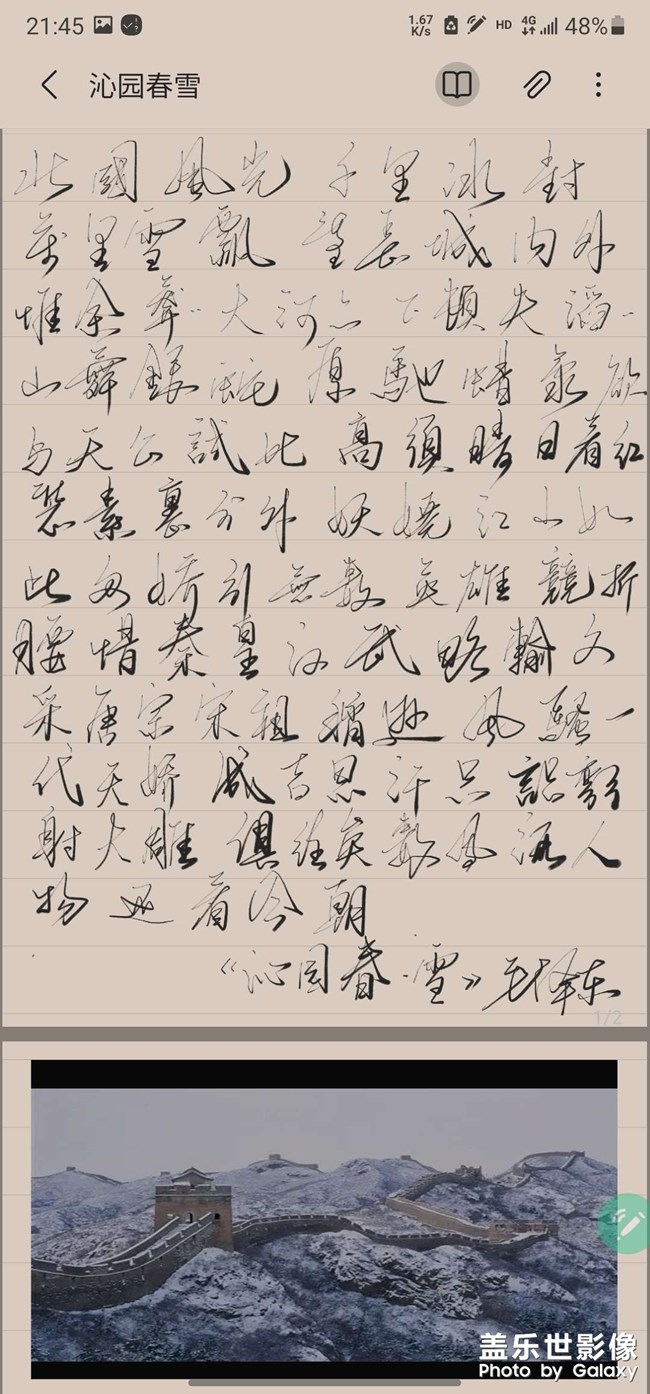 21:45 1.67 K/s HD 4G 48%
沁园春雪
北國風光 千里冰封
萬里雪飄 望長城内外
惟余莽〻大河上下頓失滔〻
山舞銀蛇 原馳蜡象欲
与天公試比高須晴日看紅
裝素裹分外妖嬈江山如
此多嬌引無數英雄競折
腰惜秦皇汉武略輸文
采唐宗宋祖稍遜風騷一
代天嬌成吉思汗只識彎
射大雕俱往矣數風流人
物还看今朝
《沁园春·雪》毛泽东
1/2
盖乐世影像
Photo by Galaxy